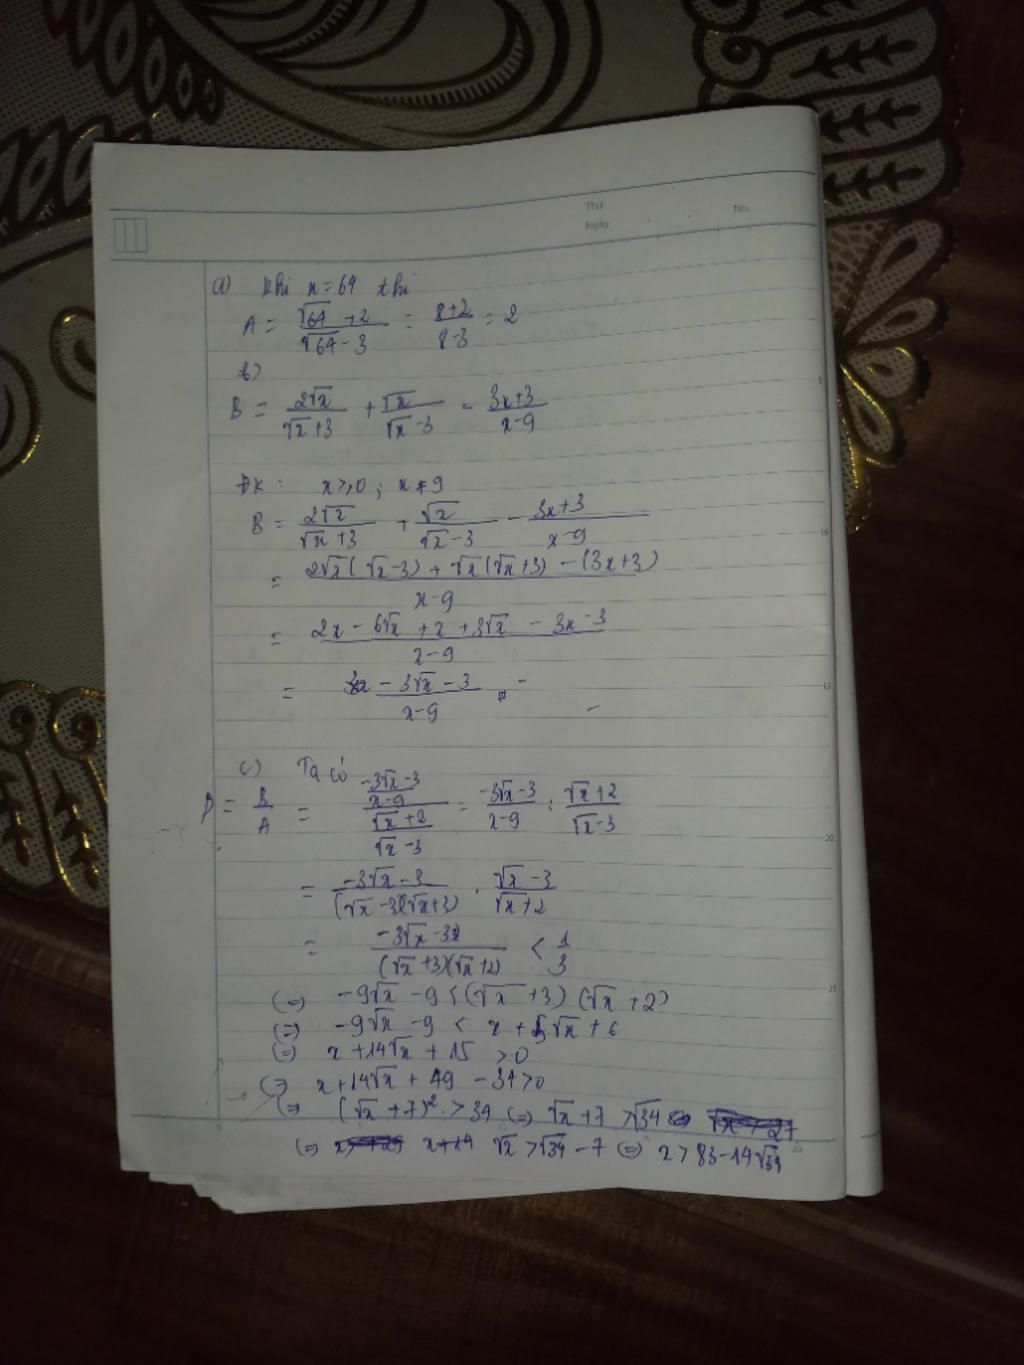 Thứ
Ngày
No.
a) Khi x = 64 thì
A = (√64 + 2)/(√64 - 3) = (8+2)/(8-3) = 2
b)
B = 2√x/(√x+3) + √x/(√x-3) - (3x+3)/(x-9)
ĐK: x ≥ 0; x ≠ 9
B = 2√x/(√x+3) + √x/(√x-3) - (3x+3)/(x-9)
= (2√x(√x-3) + √x(√x+3) - (3x+3))/(x-9)
= (2x - 6√x + x + 3√x - 3x - 3)/(x-9)
= (- 3√x - 3)/(x-9)
c) Ta có
P = B/A = ((-3√x-3)/(x-9))/((√x+2)/(√x-3)) = (-3√x-3)/(x-9) : (√x+2)/(√x-3)
= (-3√x-3)/((√x-3)(√x+3)) . (√x-3)/(√x+2)
= (-3√x-3)/((√x+3)(√x+2)) < 1/3
(=) -9√x - 9 < (√x + 3)(√x + 2)
(=) -9√x - 9 < x + 5√x + 6
(=) x + 14√x + 15 > 0
(=) x + 14√x + 49 - 34 > 0
(=) (√x + 7)² > 34 (=) √x + 7 > √34
(=) √x > √34 - 7 (=) x > 83 - 14√34
5
10
15
20
25